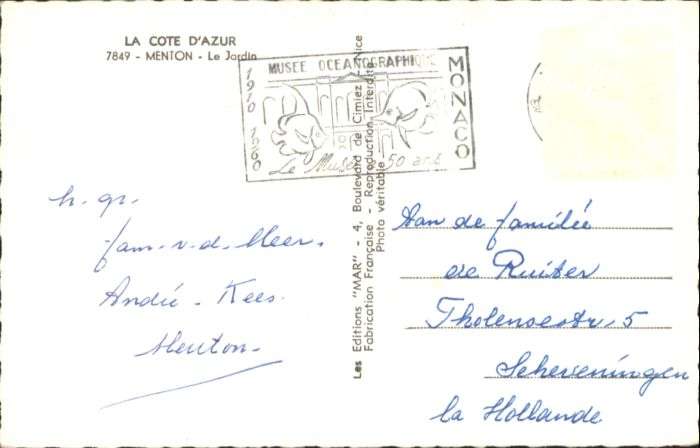 LA COTE D'AZUR
7849 - MENTON - Le Jardin
MUSEE OCEANOGRAPHIQUE
MONACO
1910 1960
Le Musée 50 ans
h. gr.
fam. v. d. Meer.
André - Kees.
Menton.
Les Editions "MAR" - 4, Boulevard de Cimiez - Nice
Fabrication Française - Reproduction Interdite
Photo véritable
Aan de familie
de Ruiter
Tholensestr. 5
Scheveningen
la Hollande